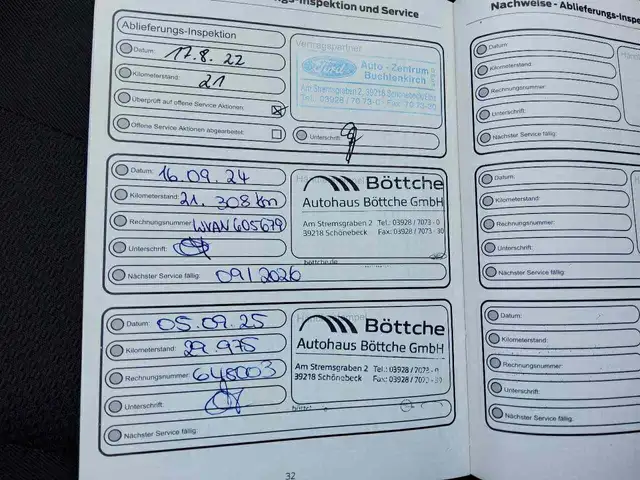 gs-Inspektion und Service
Ablieferungs-Inspektion
Datum: 17.8.22
Kilometerstand: 21
Überprüft auf offene Service Aktionen:
Offene Service Aktionen abgearbeitet:
Vertragspartner
Ford
Auto - Zentrum
Buchlenkirch
Am Stremsgraben 2, 39218 Schönebeck/Elbe
Tel. 03928 / 70 73-0 Fax
Unterschrift:
Datum: 16.09.24
Kilometerstand: 21.308km
Rechnungsnummer: WVAN605679
Unterschrift:
Nächster Service fällig: 09/2026
Böttche
Autohaus Böttche GmbH
Am Stremsgraben 2 Tel.: 03928 / 7073 - 0
39218 Schönebeck Fax: 03928 / 7073 - 30
böttche.de
Datum: 05.09.25
Kilometerstand: 29.975
Rechnungsnummer: 648003
Unterschrift:
Nächster Service fällig:
Böttche
Autohaus Böttche GmbH
Am Stremsgraben 2 Tel.: 03928 / 7073 - 0
39218 Schönebeck Fax: 03928 / 7073 - 30
32
Nachweise - Ablieferungs-Inspe
Datum:
Kilometerstand:
Rechnungsnummer:
Unterschrift:
Nächster Service fällig:
Datum:
Kilometerstand:
Rechnungsnummer:
Unterschrift:
Nächster Service fällig:
Datum:
Kilometerstand:
Rechnungsnummer:
Unterschrift:
Nächster Service fällig: